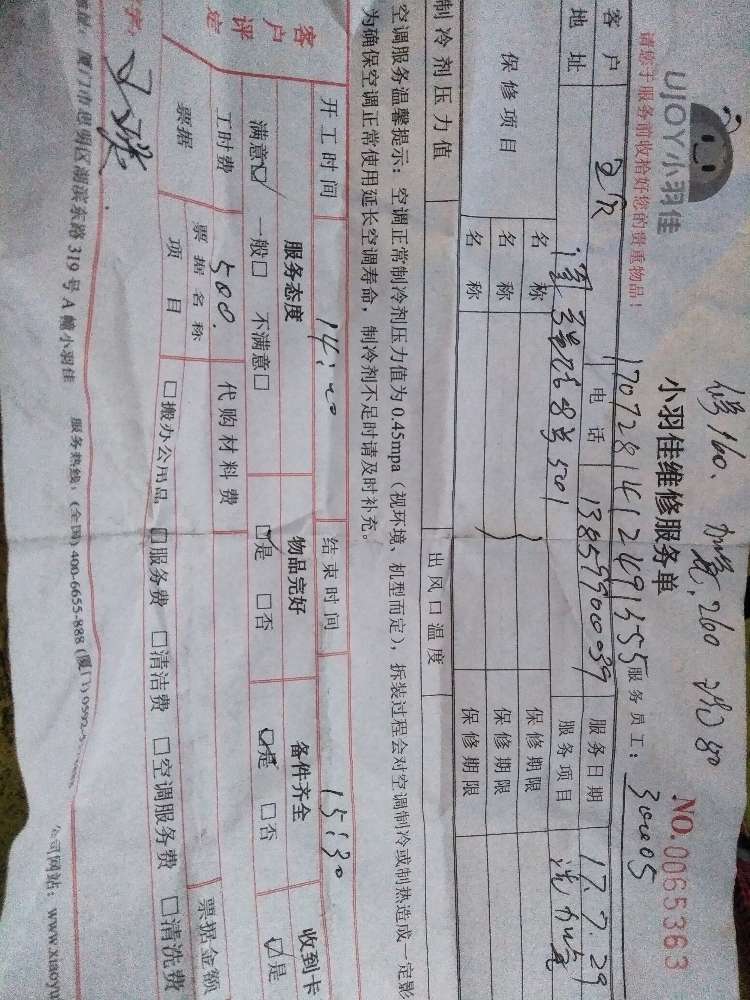 修160. 加氨.260 洗80
UJOY小羽佳
小羽佳维修服务单
NO.0065363
请您于服务前收拾好您的贵重物品！
1707281412491355 服务员工：300005
客户 电话 13859900039 服务日期 17.7.29
地址 501 服务项目 洗加氨
保修项目 名称 保修期限
名称 保修期限
名称 保修期限
制冷剂压力值 出风口温度
空调服务温馨提示：空调正常制冷剂压力值为0.45mpa（视环境、机型而定），拆装过程会对空调制冷或制热造成一定影
为确保空调正常使用延长空调寿命，制冷剂不足时请及时补充。
开工时间 14:00 结束时间 15:30
客户评定 服务态度 物品完好 备件齐全 收到卡
满意☑ 一般□ 不满意□ ☑是 □否 ☑是 □否 ☑是
工时费 500. 代购材料费
票据 票据名称 票据金额
项目 □搬办公用品 □服务费 □清洁费 □空调服务费 □清洗费
厦门市思明区湖滨东路319号A幢小羽佳 服务热线：(全国) 400-6655-888 (厦门) 0592-5 公司网站：www.xiaoyu